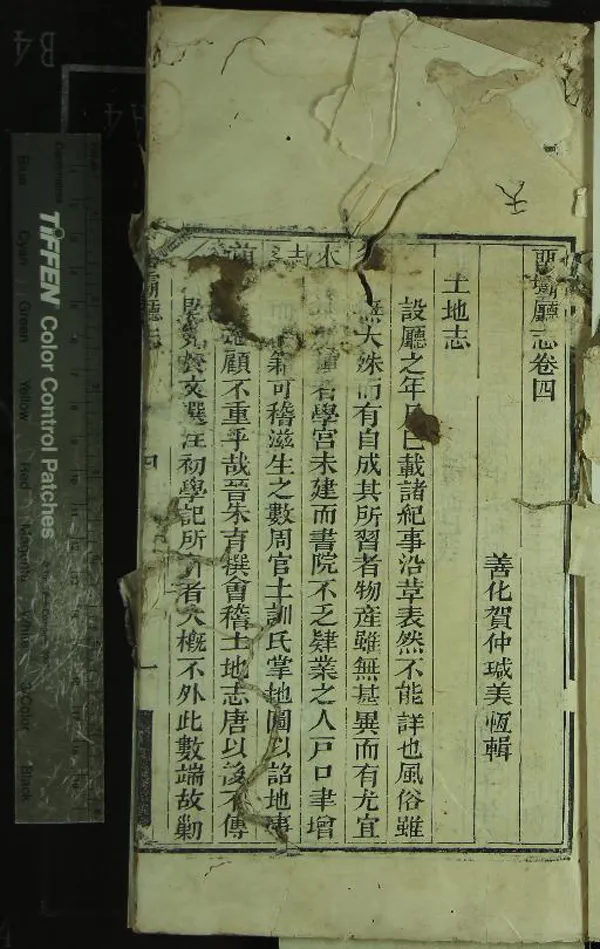 廳志卷四
善化賀仲瑊美恆輯
土地志
設廳之年 已載諸紀事沿革表然不能詳也風俗雖
無大殊而有自成其所習者物產雖無甚異而有尤宜
者學宮未建而書院不乏肄業之人戶口聿增
可稽滋生之數周官土訓氏掌地圖以詔地事
顧不重乎哉晉朱育撰會稽土地志唐以後不傳
文選注初學記所 者大概不外此數端故
廳志
四
一
TIFFEN Color Control Patches
Centimetres
Blue
Cyan
Green
Yellow
Red
Magenta
White
Color
Black
B4
A4